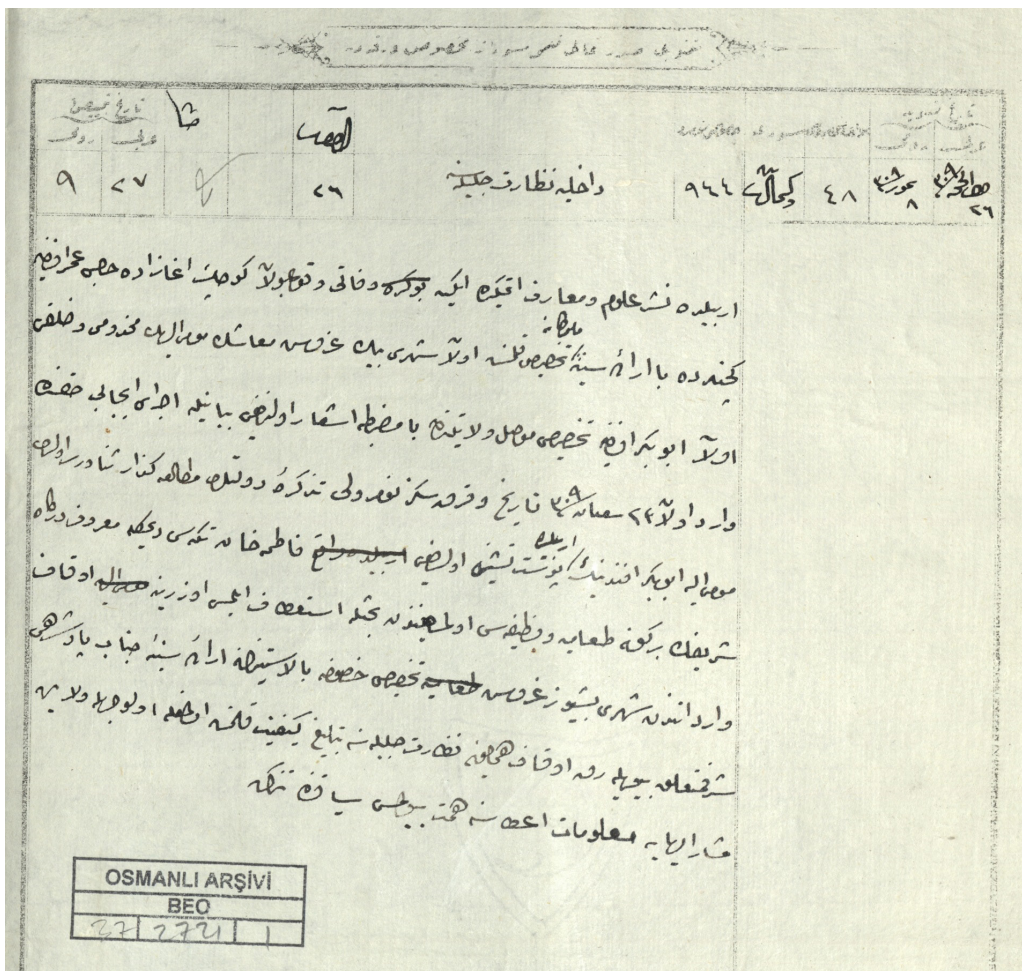 تاريخ تسويد
عربى رومى
تاريخ تبييض
عربى رومى
ذى الحجه ٣٠٩
٢٦
تموز ٣٠٨
٨
٤٨
٩٤٤
داخليه نظارت جليله سنه
٢٦
٢٧
٩
اربيلده نشر علوم ومعارف ايتمكده ايكن بوكره وفاتى وقوعبولان كوچك اغازاده حاجى عمر افندى
با اراده سنيه تخصيص قلنان اولان شهرى بيك غروش معاشك مومى اليهك مخدومى وخلفى
اولان ابوبكر افندى يه تخصيصى موصل ولايتندن با مضبطه اشعار اولنديغى بيانيله اجراى ايجابى حقنده
وارد اولان ٢٣ شعبان ٣٠٩ تاريخ وقرق سكز نومرولى تذكرهٔ دولتلرى مطالعه كذار ثناورى اولدى
موما اليه ابوبكر افندينك اربلده پوستنشينى اولديغى فاطمه خان تكيه سى ديمكله معروف دركاه
شريفك بركونه طعاميه ووظيفه سى اولمديغندن بحثله استعطاف ايلمسى اوزرينه اوقاف
وارداتندن شهرى بشيوز غروش تخصيصى خصوصنه بالاستيذان اراده سنيه جناب پادشاهى
شرفتعلق بيوريله رق اوقاف همايون نظارت جليله سنه تبليغ كيفيت قلنمش اولمغله اولوجهله ولايت
مشار اليهايه معلومات اعطاسنه همت بيورلمسى سياقنده تذكره
OSMANLI ARŞİVİ
BEO
37 2721 1